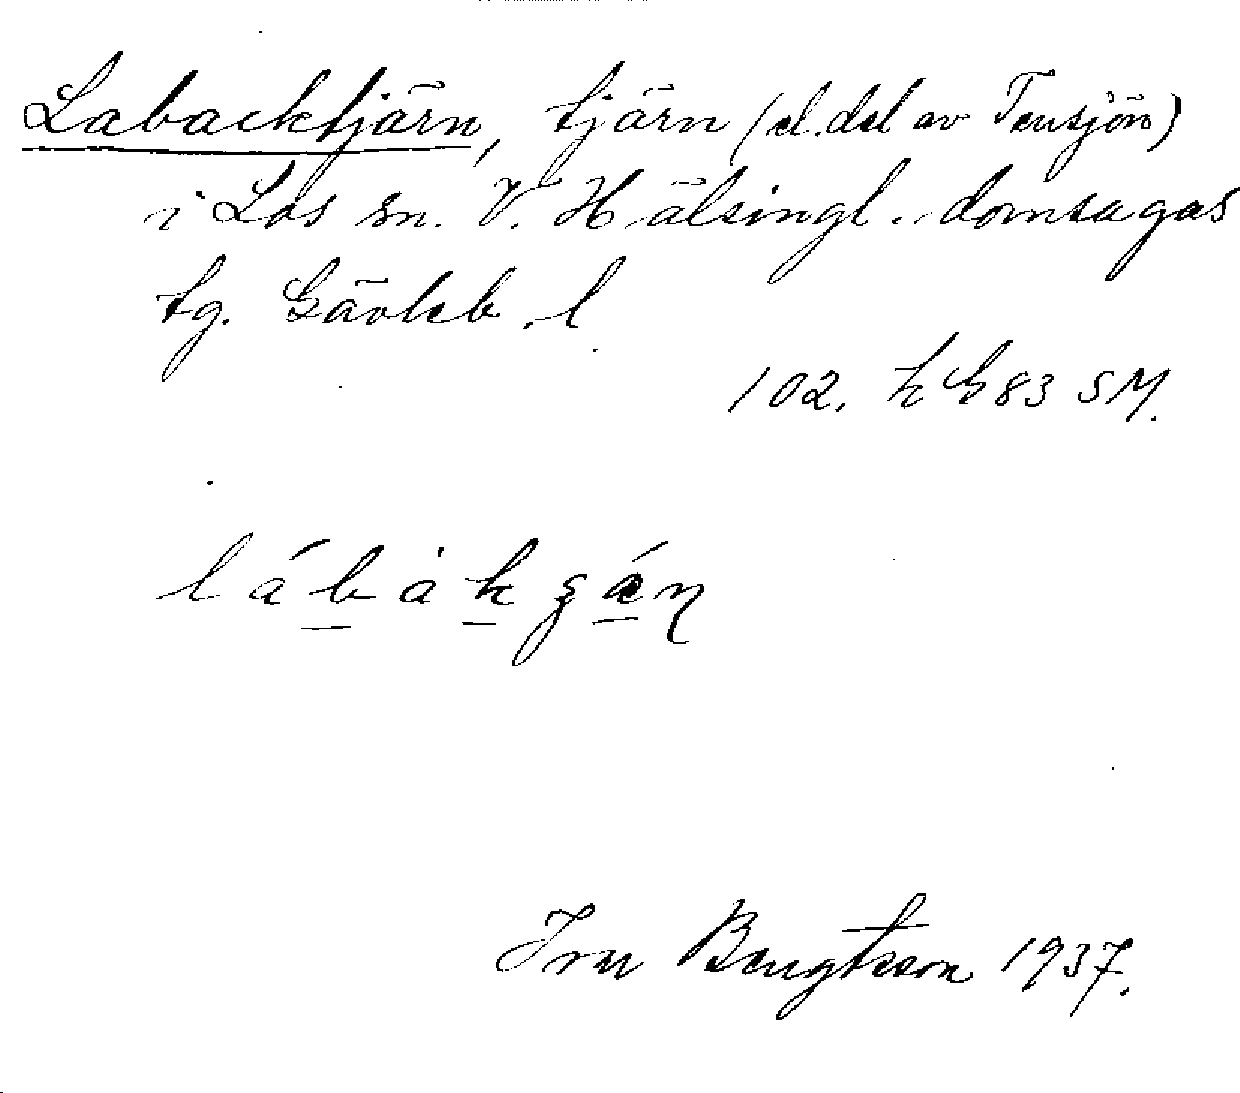 Labacktjärn, tjärn (el. del av Tensjön)
i Los sn. V. Hälsingl. domsagas
tg. Gävleb. l
102. h G 83 SM.
lábàkʂǽɳ
Bengtsson 1937.